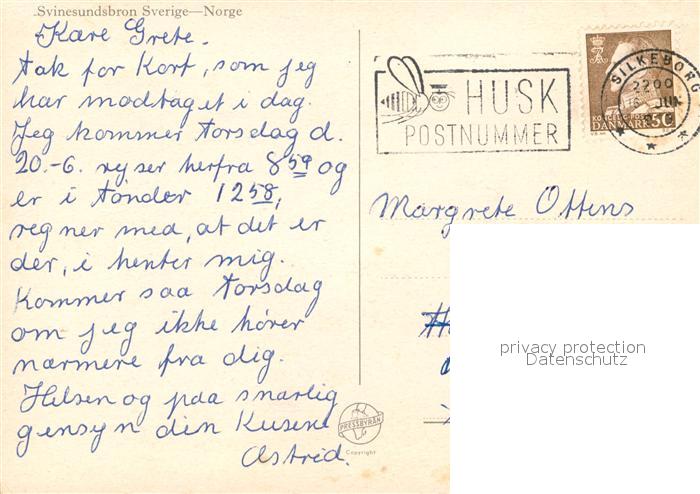 Svinesundsbron Sverige—Norge
Kære Grete.
tak for Kort, som jeg
har modtaget i dag.
Jeg kommer torsdag d.
20.-6. rejser herfra 8 59 og
er i tønder 12 58,
regner med, at det er
der, i henter mig.
Kommer saa torsdag
om jeg ikke hører
nærmere fra dig.
Hilsen og paa snarlig
gensyn din Kusine
Astrid.
HUSK
POSTNUMMER
SILKEBORG
2200
16 JUN
DANMARK 50
Margrete Ottens
privacy protection
Datenschutz
PRESSBYRÅN
Copyright